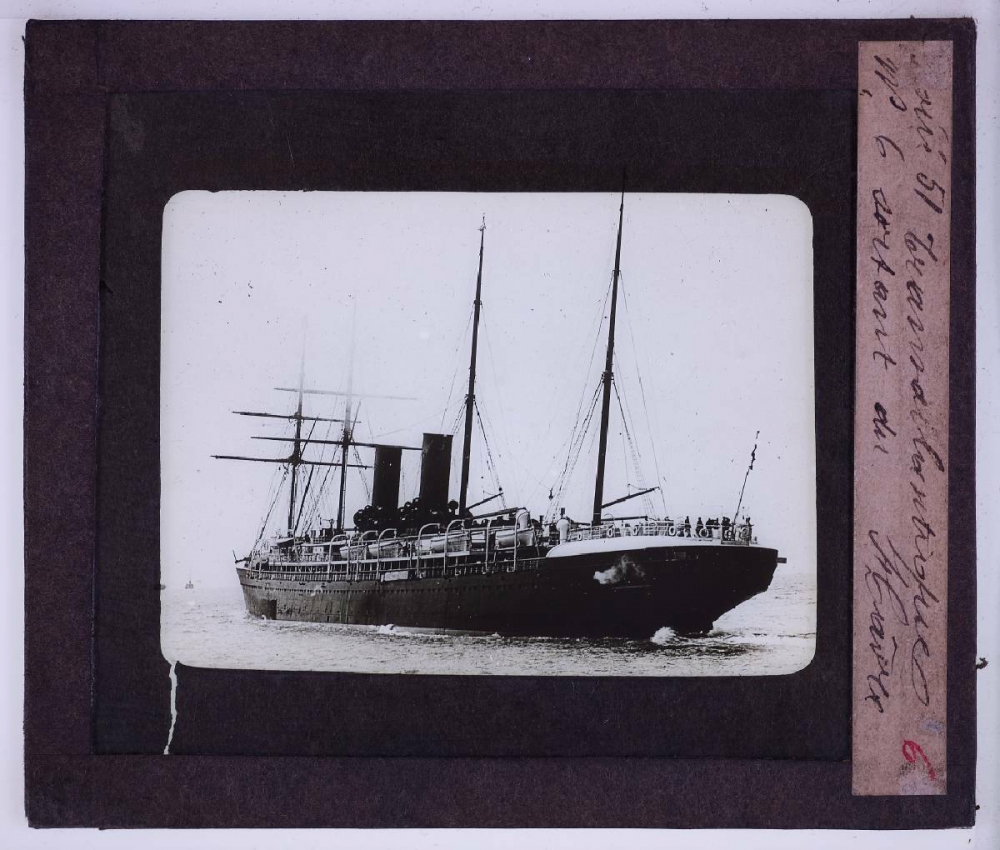 Série 51 Transatlantiques
N° 6 sortant du Hâvre
6